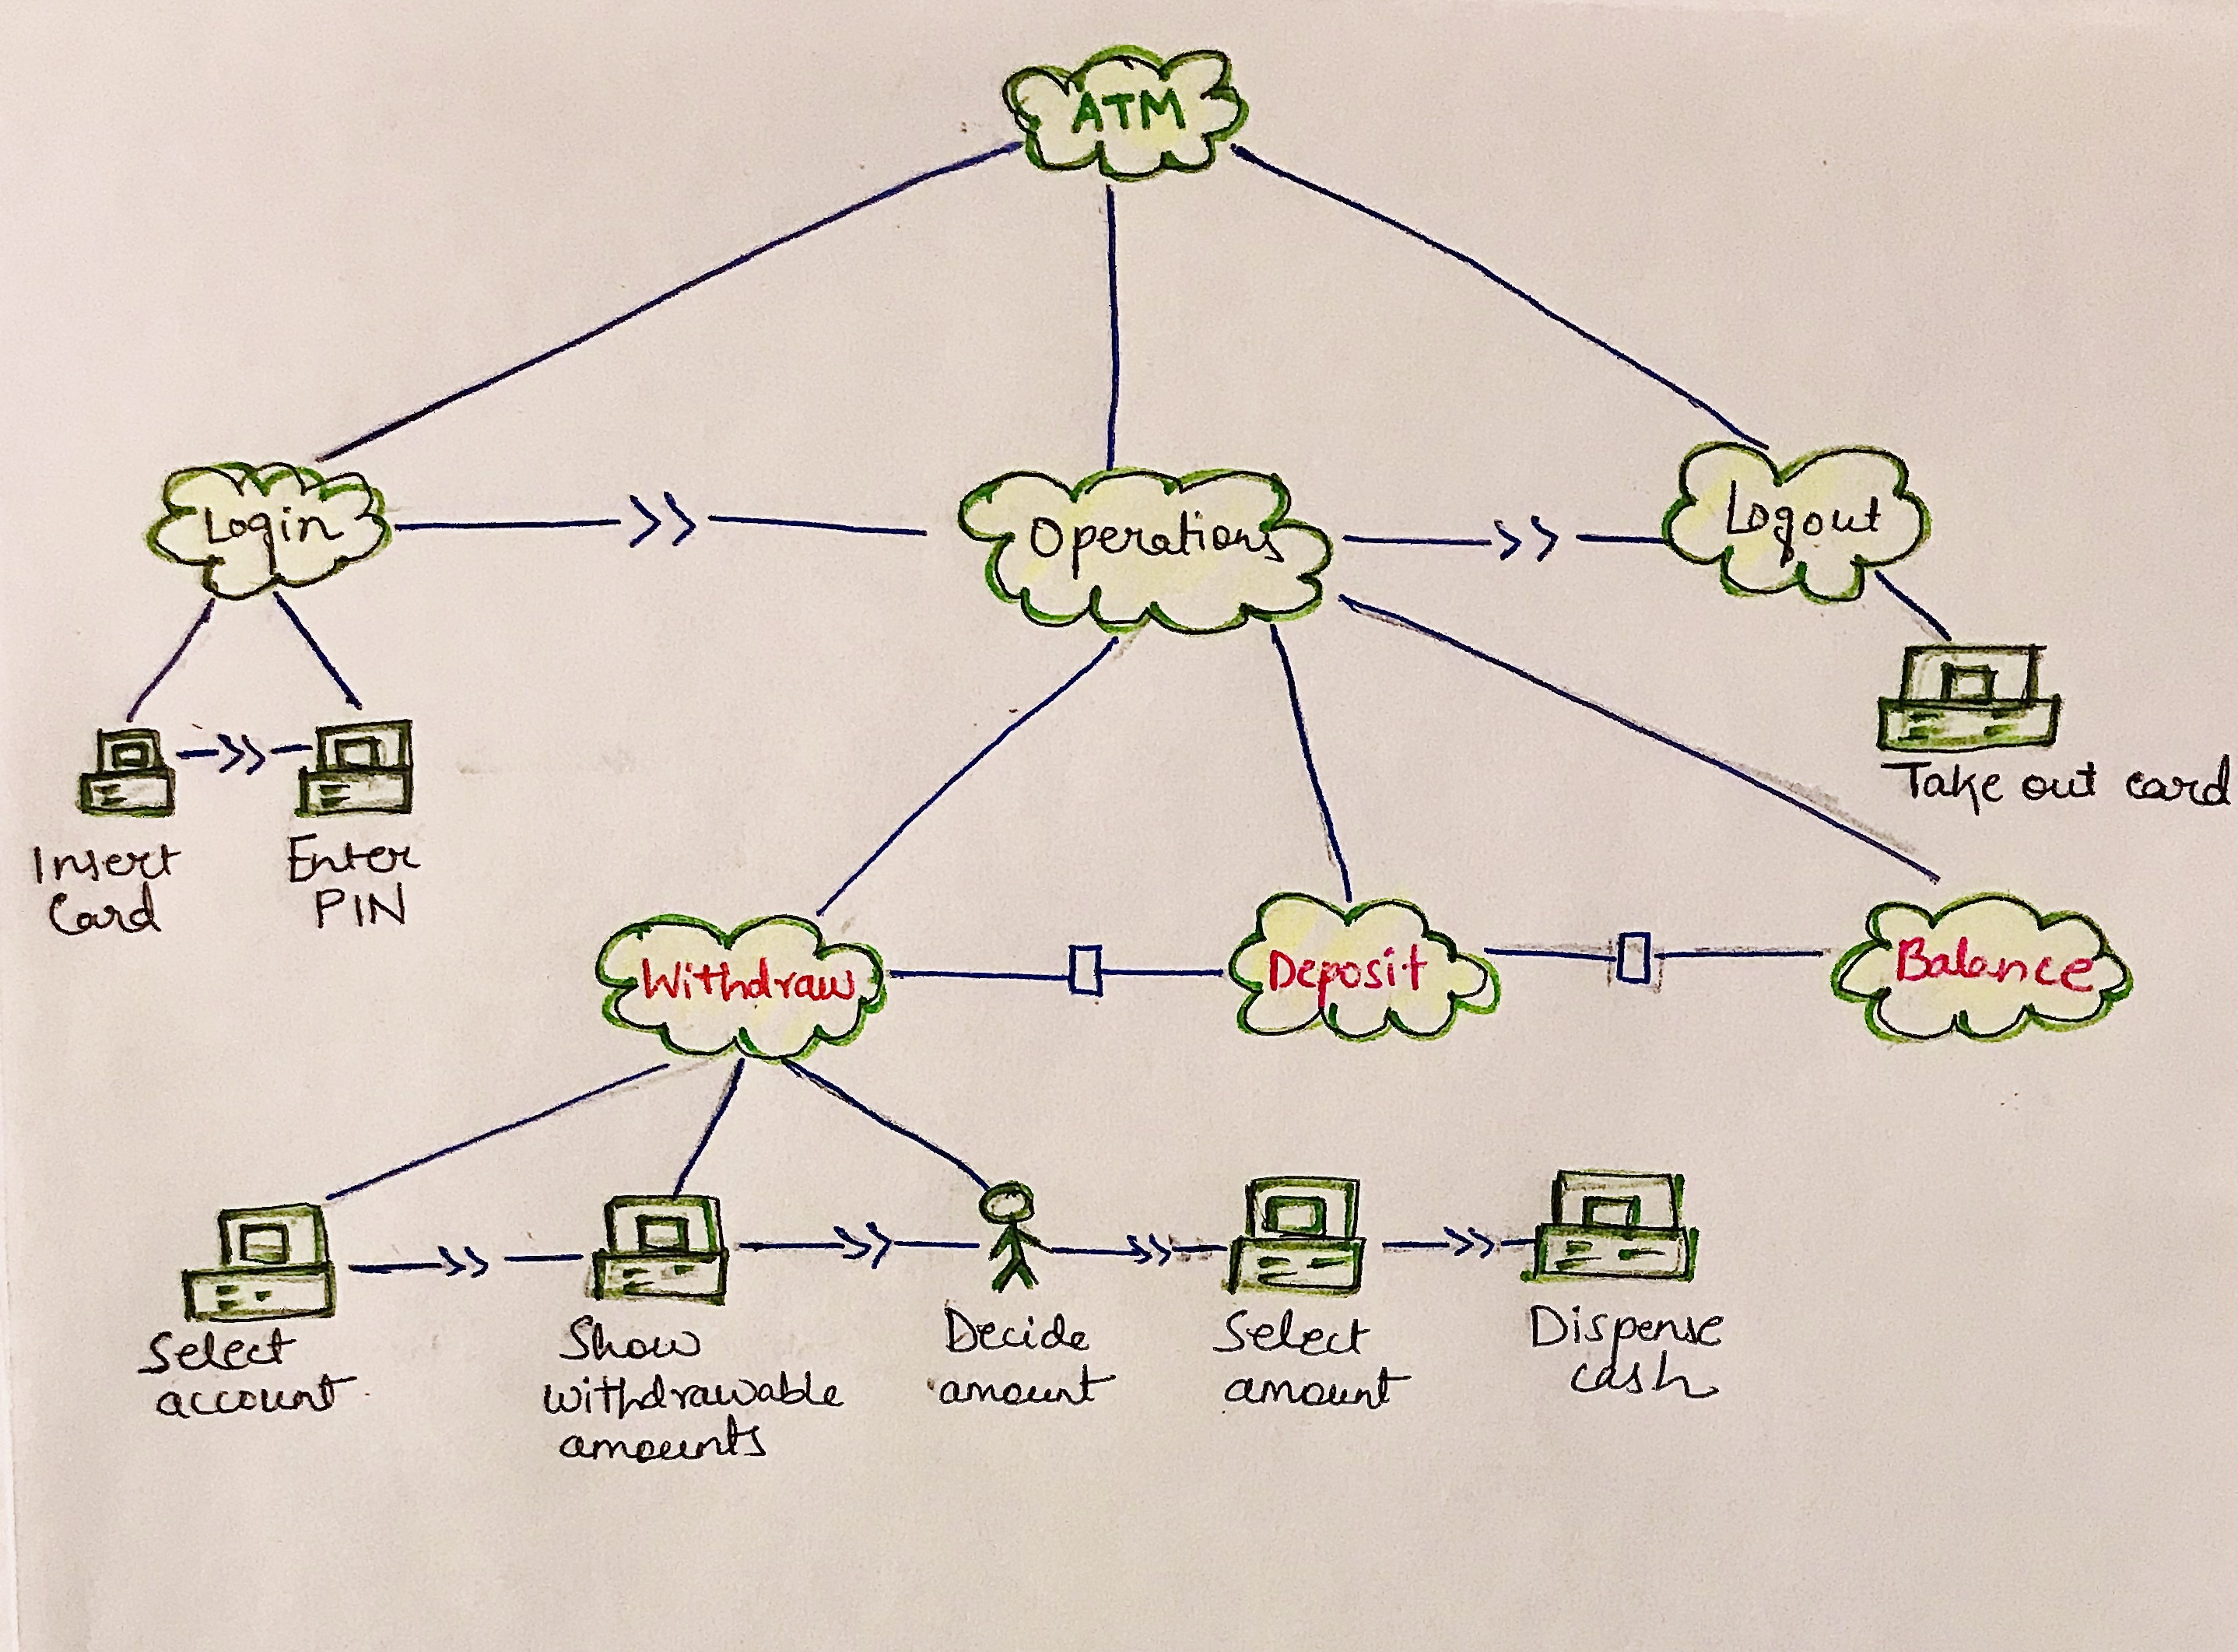 ATM
Login
Operations
Logout
Take out card
Insert
Card
Enter
PIN
Withdraw
Deposit
Balance
Select
account
Show
withdrawable
amounts
Decide
amount
Select
amount
Dispense
cash